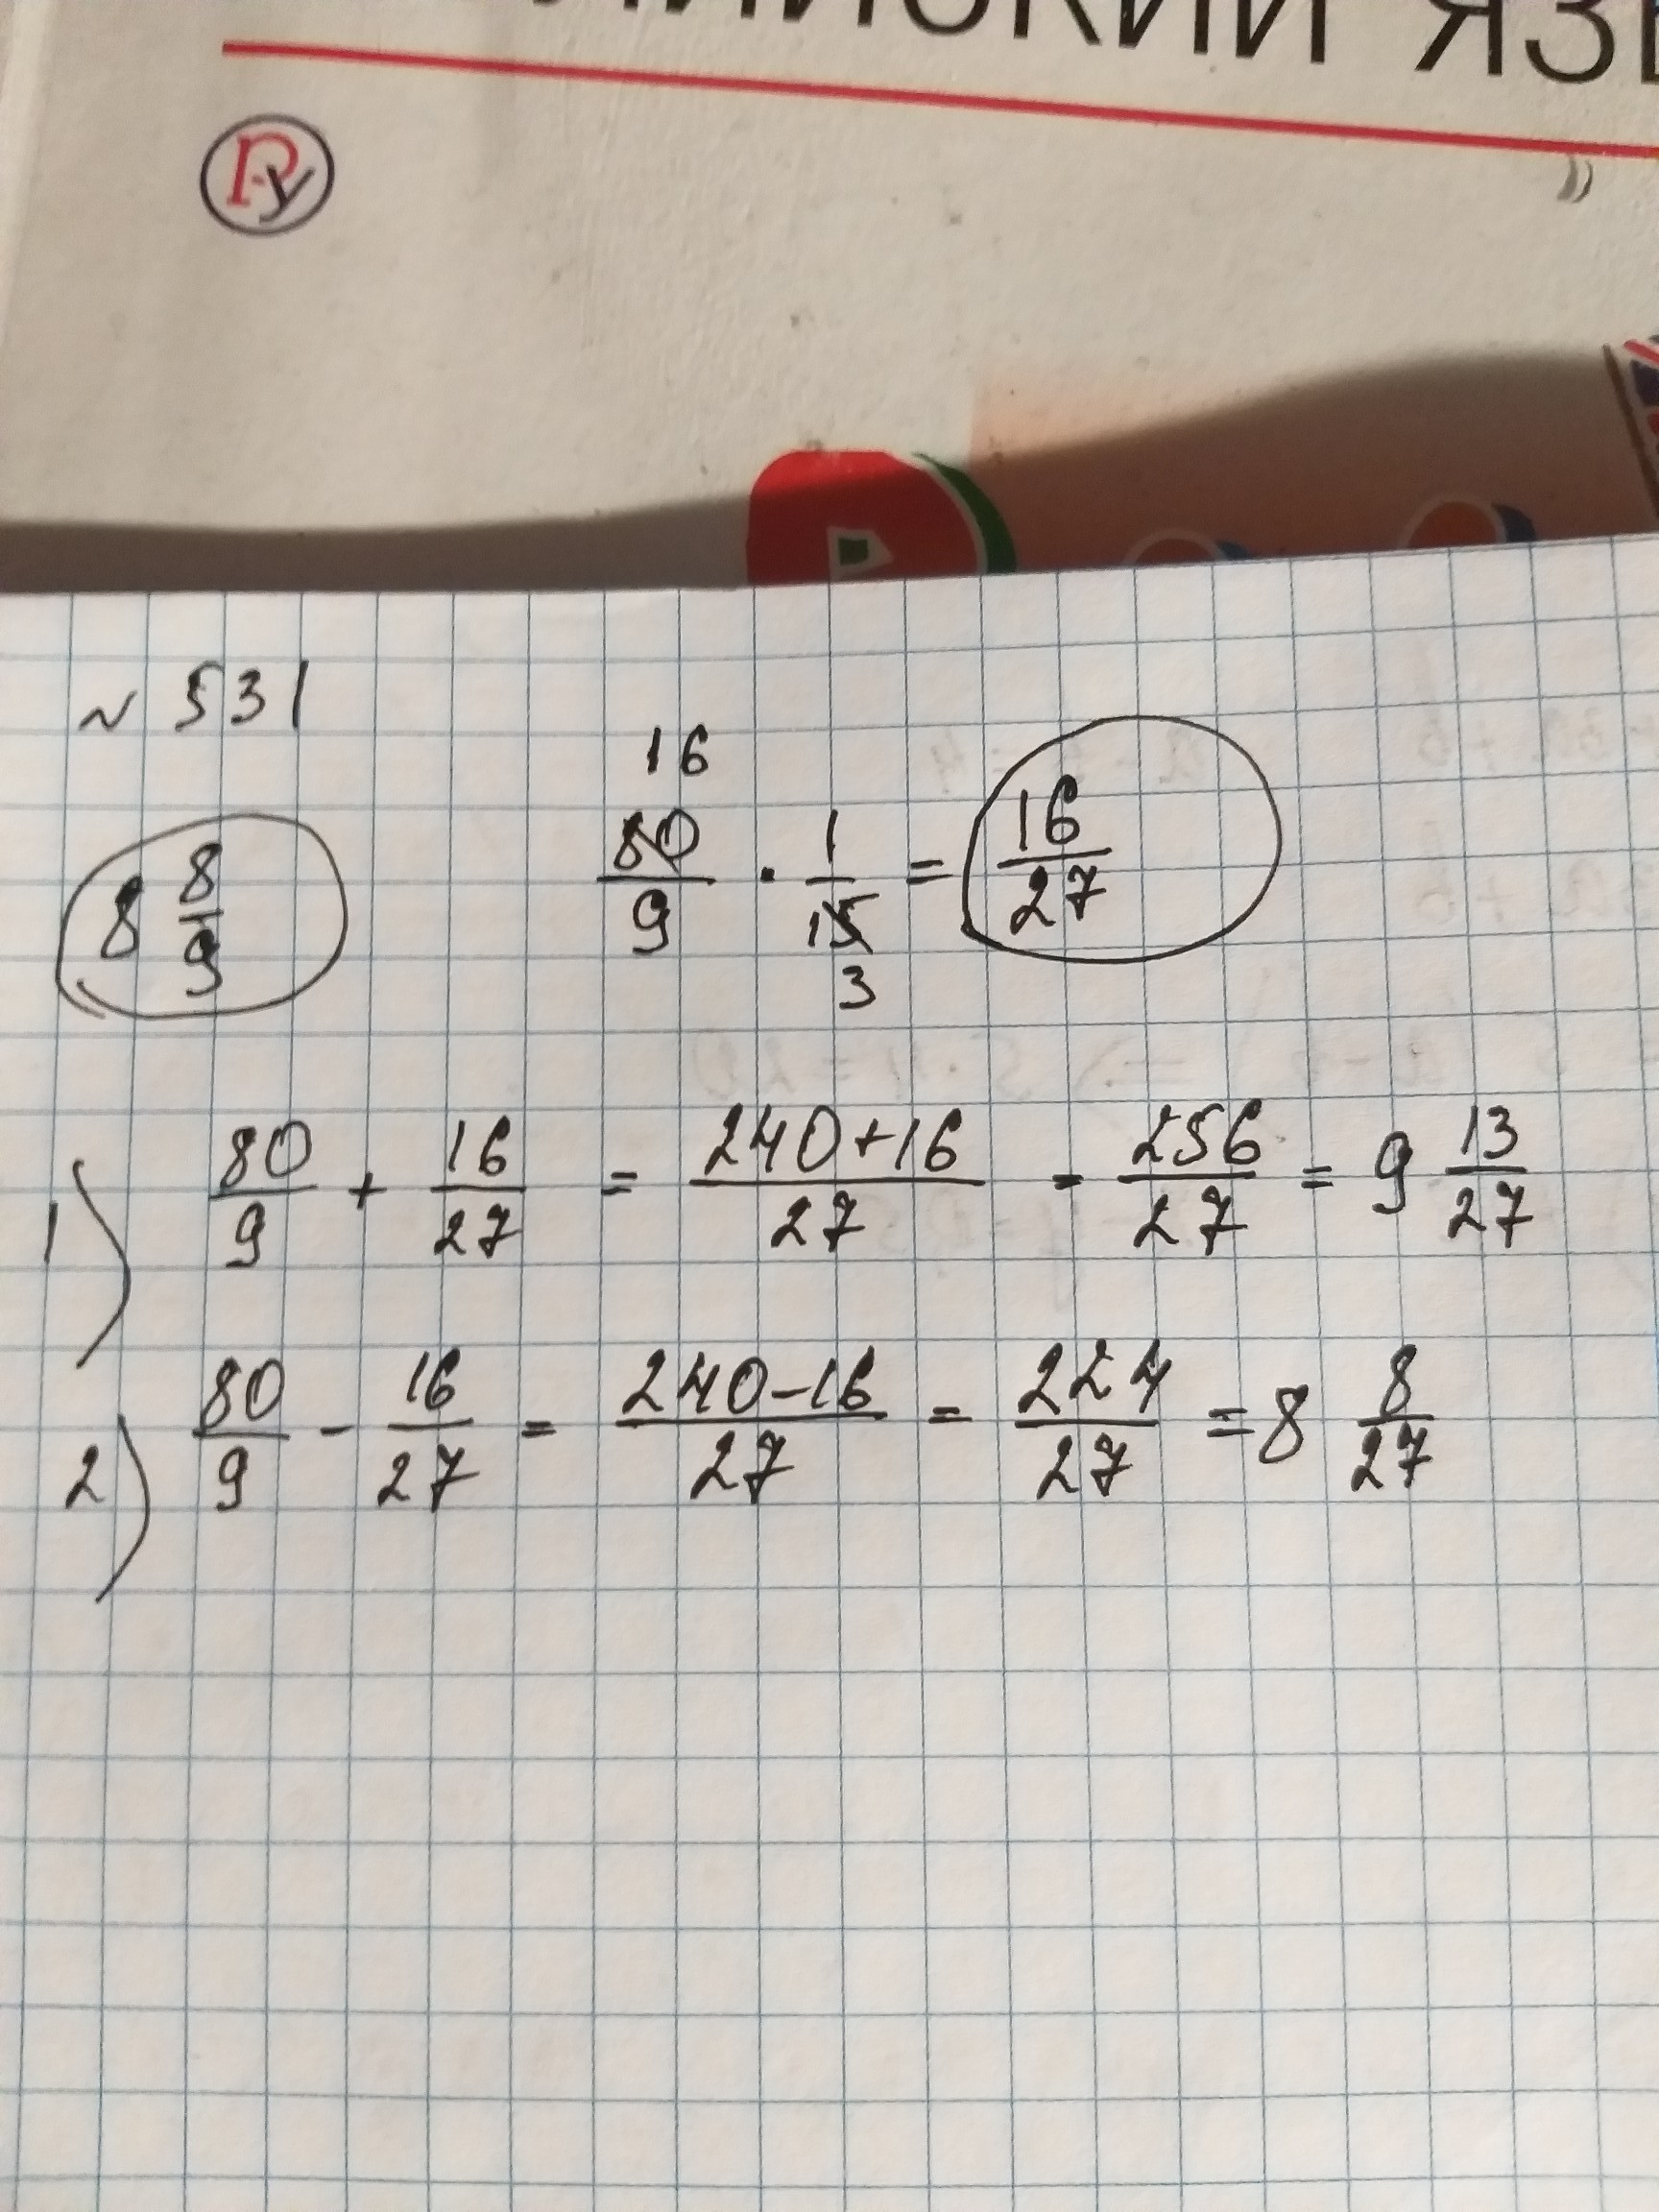 ЯЗ
РУ
№ 531
16
8 8/9 80/9 · 1/15 = 16/27
3
1) 80/9 + 16/27 = (240+16)/27 = 256/27 = 9 13/27
2) 80/9 - 16/27 = (240-16)/27 = 224/27 = 8 8/27